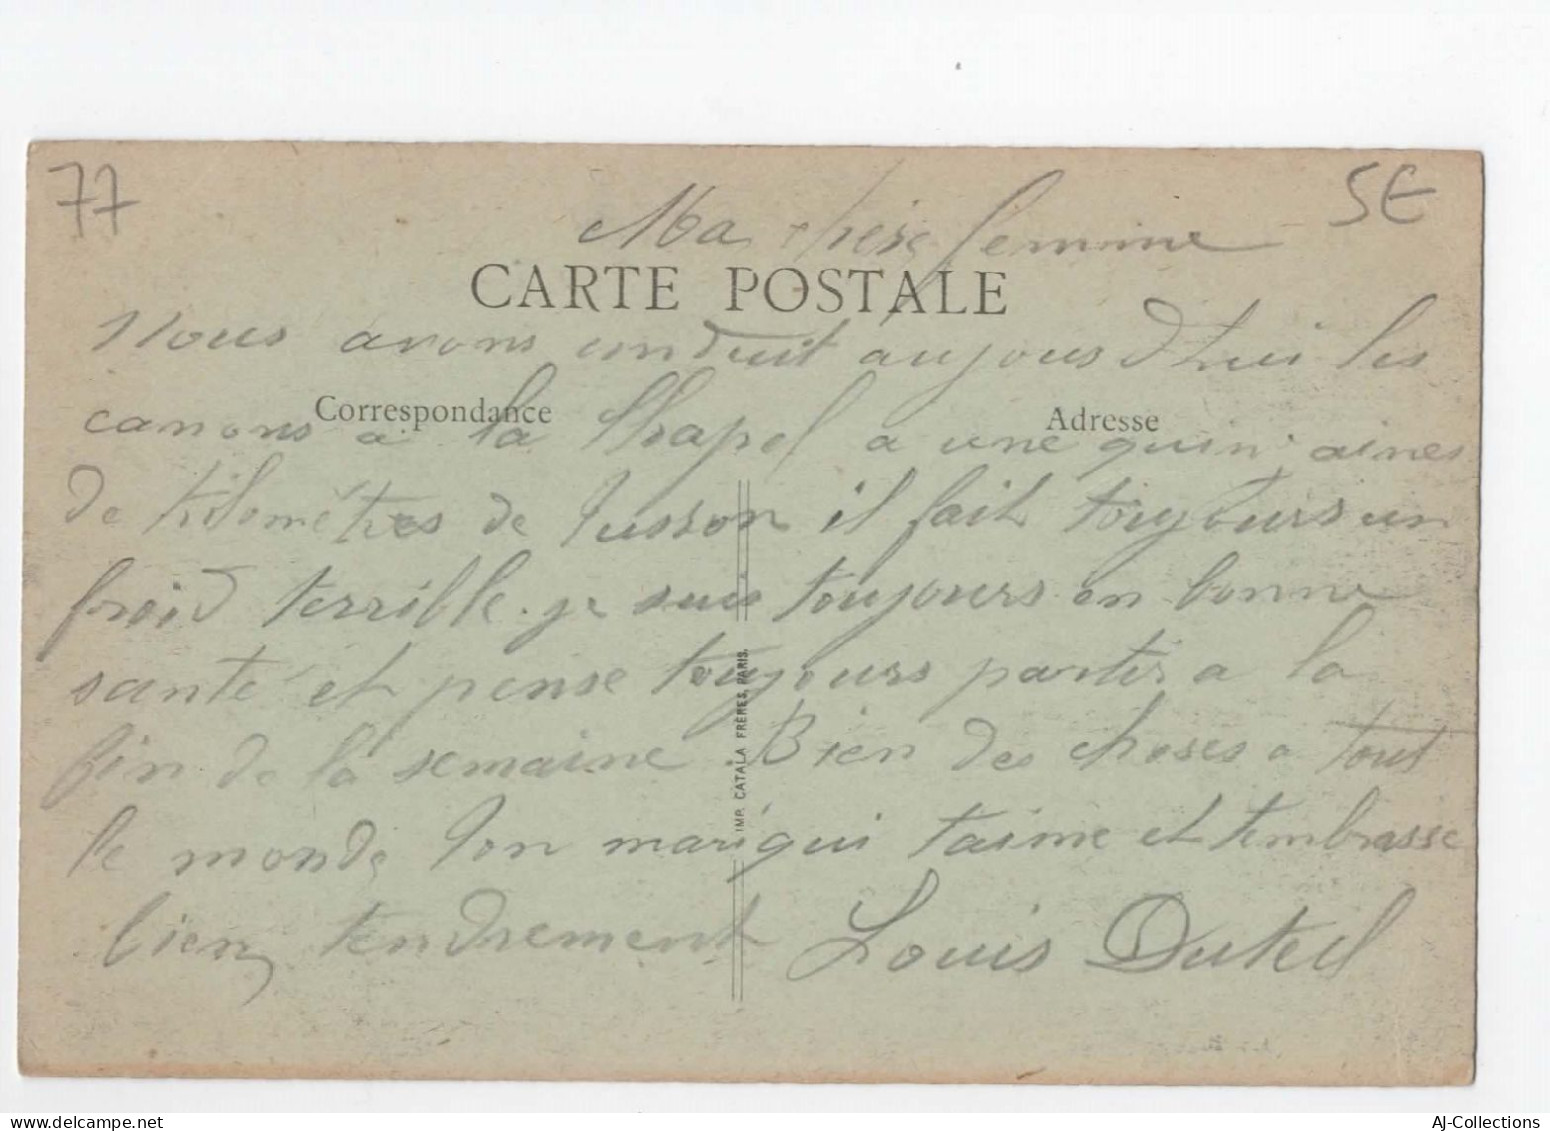 77
5€
Ma chère femme
CARTE POSTALE
Nous avons conduit aujours d'hui les
Correspondance
Adresse
canons a la Chapel a une quinzaines
de kilomètres de Lusson il fait toujours un
froid terrible. je suis toujours en bonne
santé et pense toujours partir a la
fin de la semaine. Bien des choses a tout
le monde Ton mari qui taime et tembrasse
bien tendrement Louis Duteil
IMP. CATALA FRÈRES, PARIS.
AJ-Collections